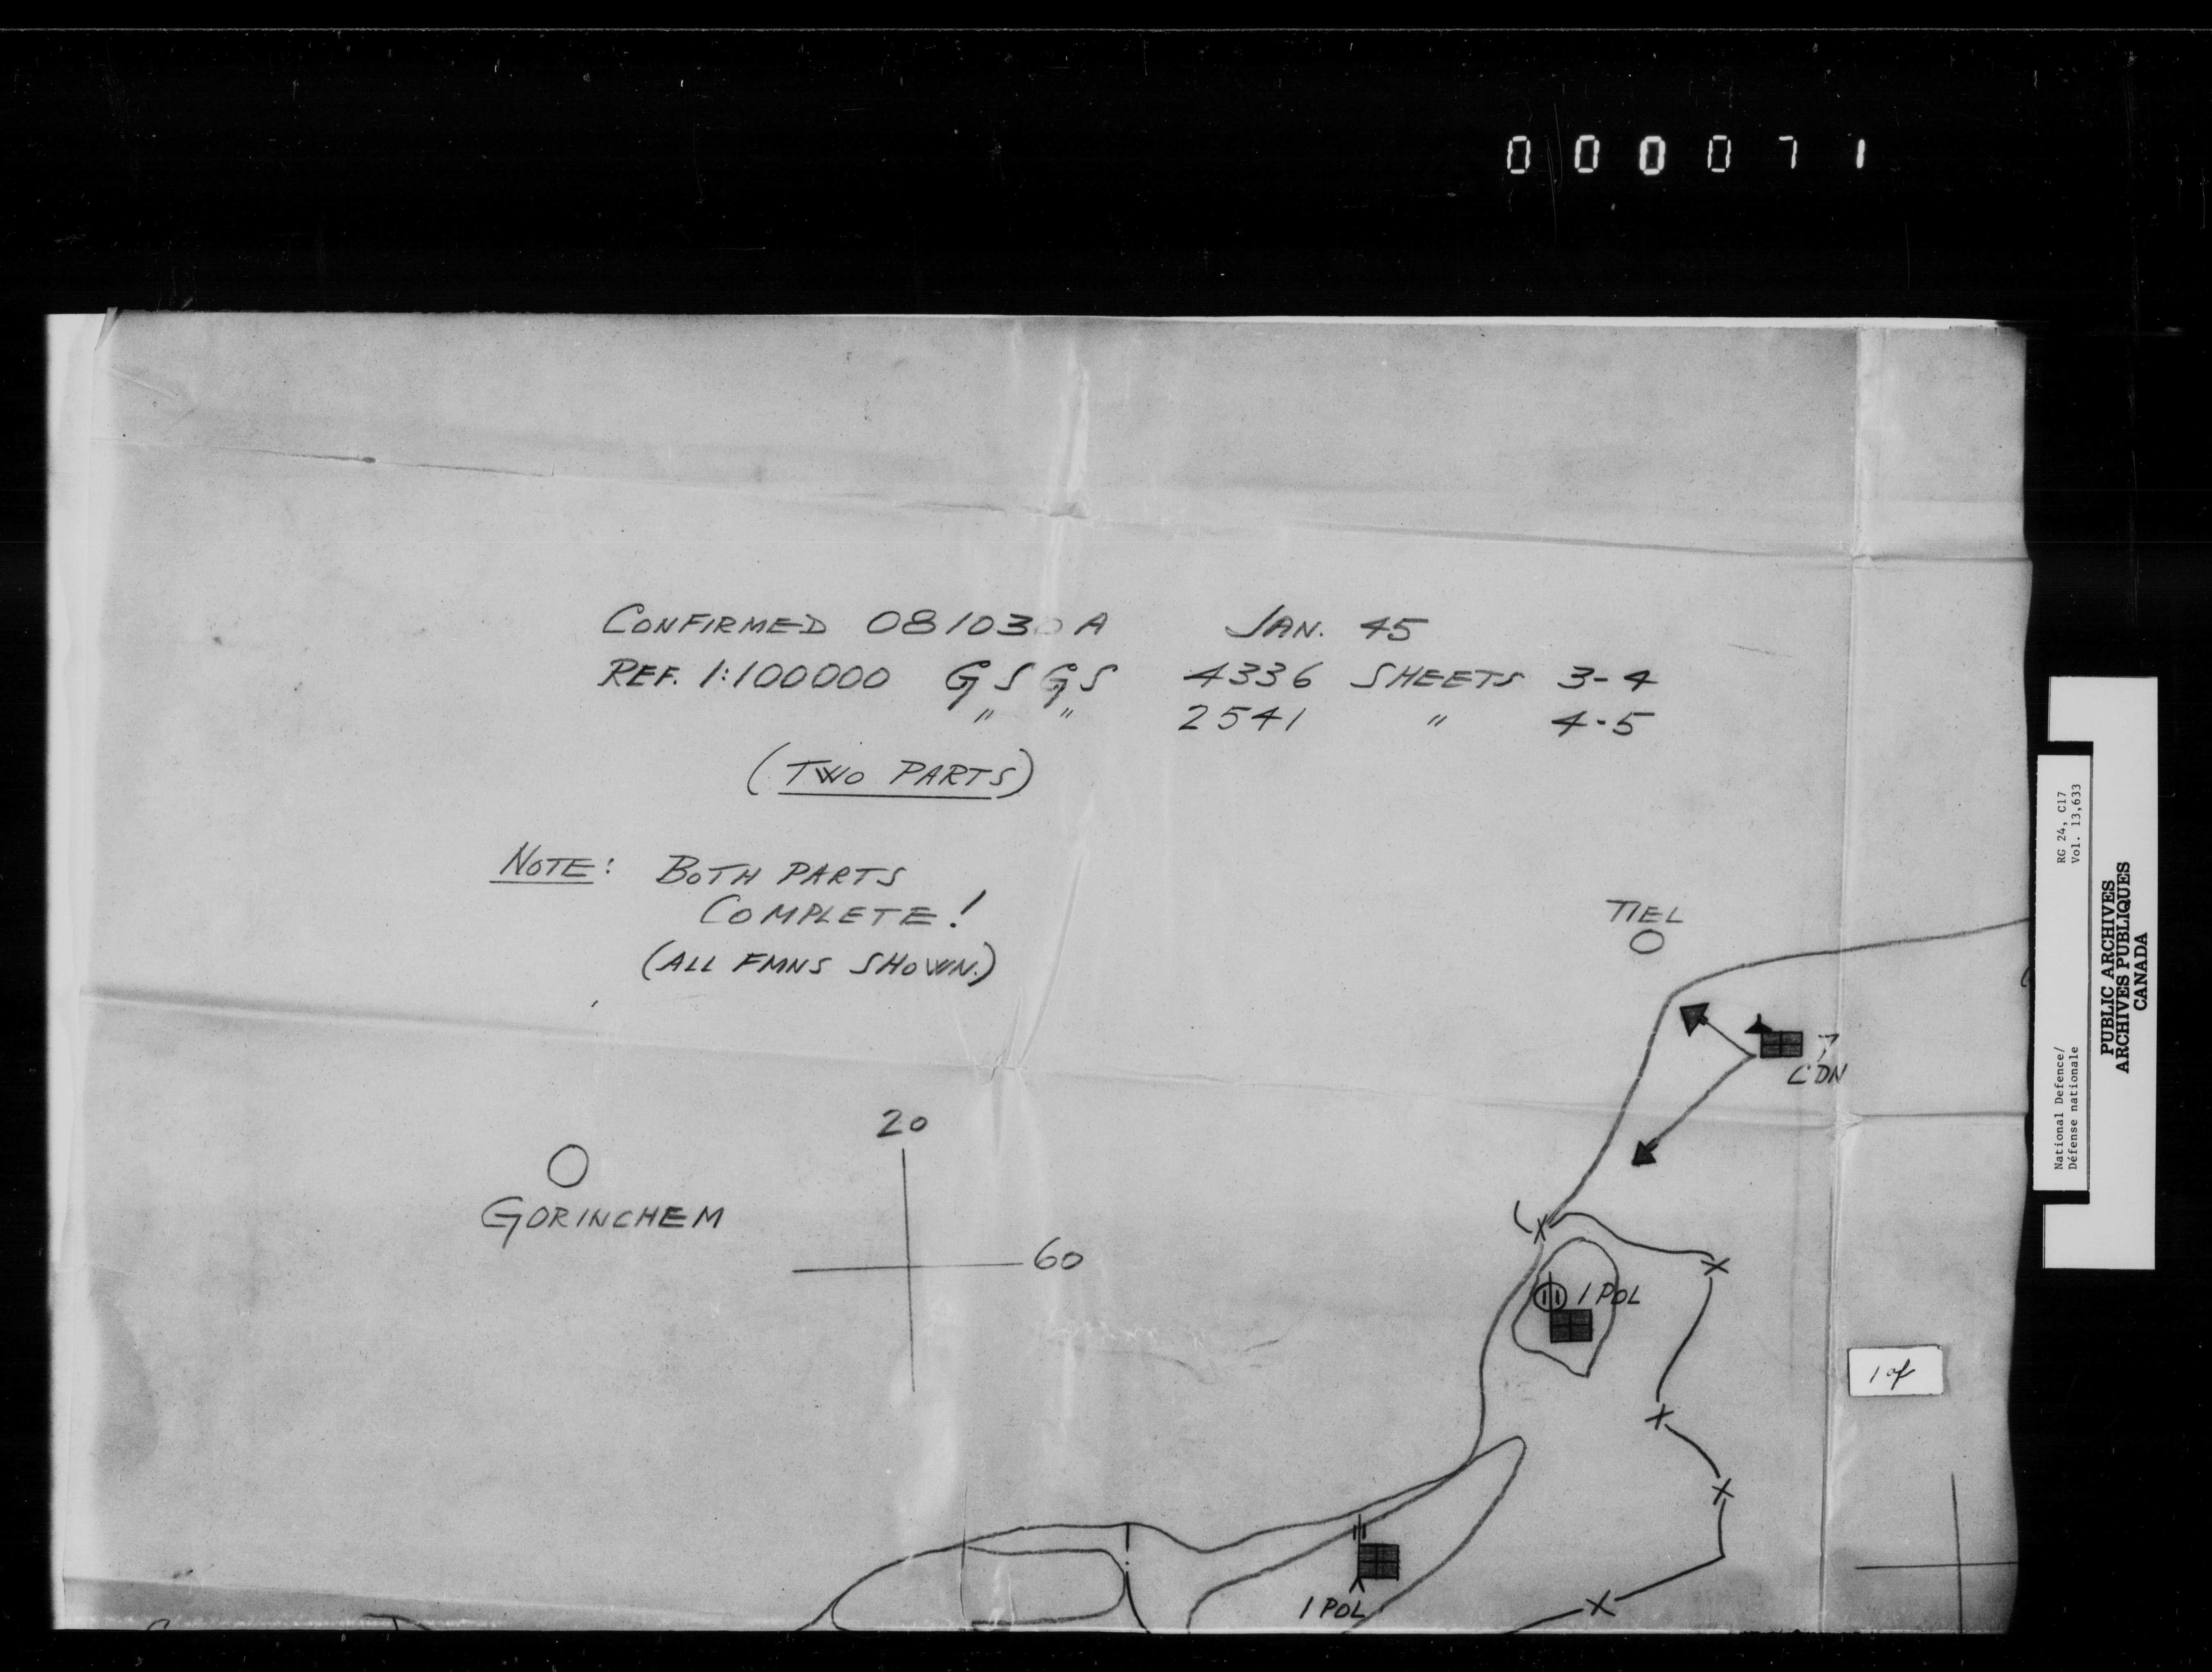 000071
CONFIRMED 081030A JAN. 45
REF. 1:100000 GSGS 4336 SHEETS 3-4
" " 2541 " 4-5
(TWO PARTS)
NOTE: BOTH PARTS
COMPLETE!
(ALL FMNS SHOWN.)
TIEL
7
CDN
20
GORINCHEM
60
1 POL
1 POL
1 of
RG 24, C17
Vol. 13,633
National Defence/
Défense nationale
PUBLIC ARCHIVES
ARCHIVES PUBLIQUES
CANADA